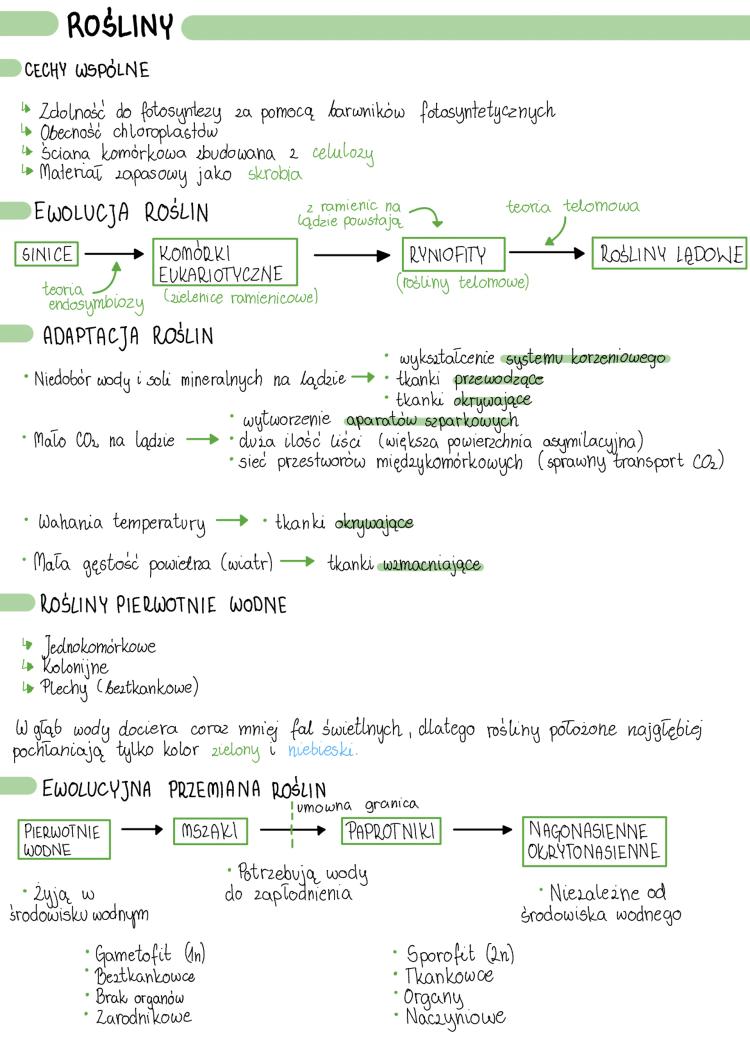 ROŚLINY
CECHY WSPÓLNE
Zdolność do fotosyntezy za pomocą barwników fotosyntetycznych
Obecność chloroplastów
Ściana komórkowa zbudowana z celulozy
Materiał zapasowy jako skrobia
EWOLUCJA ROŚLIN
z ramienic na
lądzie powstają
teoria telomowa
SINICE
KOMÓRKI
EUKARIOTYCZNE
RYNIOFITY
ROŚLINY LĄDOWE
teoria
endosymbiozy
(zielenice ramienicowe)
(rośliny telomowe)
ADAPTACJA ROŚLIN
• Niedobór wody i soli mineralnych na lądzie
• wykształcenie systemu korzeniowego
• tkanki przewodzące
• tkanki okrywające
• Mało CO₂ na lądzie
• wytworzenie aparatów szparkowych
• duża ilość liści (większa powierzchnia asymilacyjna)
• sieć przestworów międzykomórkowych (sprawny transport CO₂)
• Wahania temperatury
• tkanki okrywające
• Mała gęstość powietrza (wiatr)
tkanki wzmacniające
ROŚLINY PIERWOTNIE WODNE
Jednokomórkowe
Kolonijne
Plechy (beztkankowe)
W głąb wody dociera coraz mniej fal świetlnych, dlatego rośliny położone najgłębiej
pochłaniają tylko kolor zielony i niebieski.
EWOLUCYJNA PRZEMIANA ROŚLIN
umowna granica
PIERWOTNIE
WODNE
MSZAKI
PAPROTNIKI
NAGONASIENNE
OKRYTONASIENNE
• Żyją w
środowisku wodnym
• Potrzebują wody
do zapłodnienia
• Niezależne od
środowiska wodnego
• Gametofit (1n)
• Beztkankowce
• Brak organów
• Zarodnikowe
• Sporofit (2n)
• Tkankowce
• Organy
• Naczyniowe